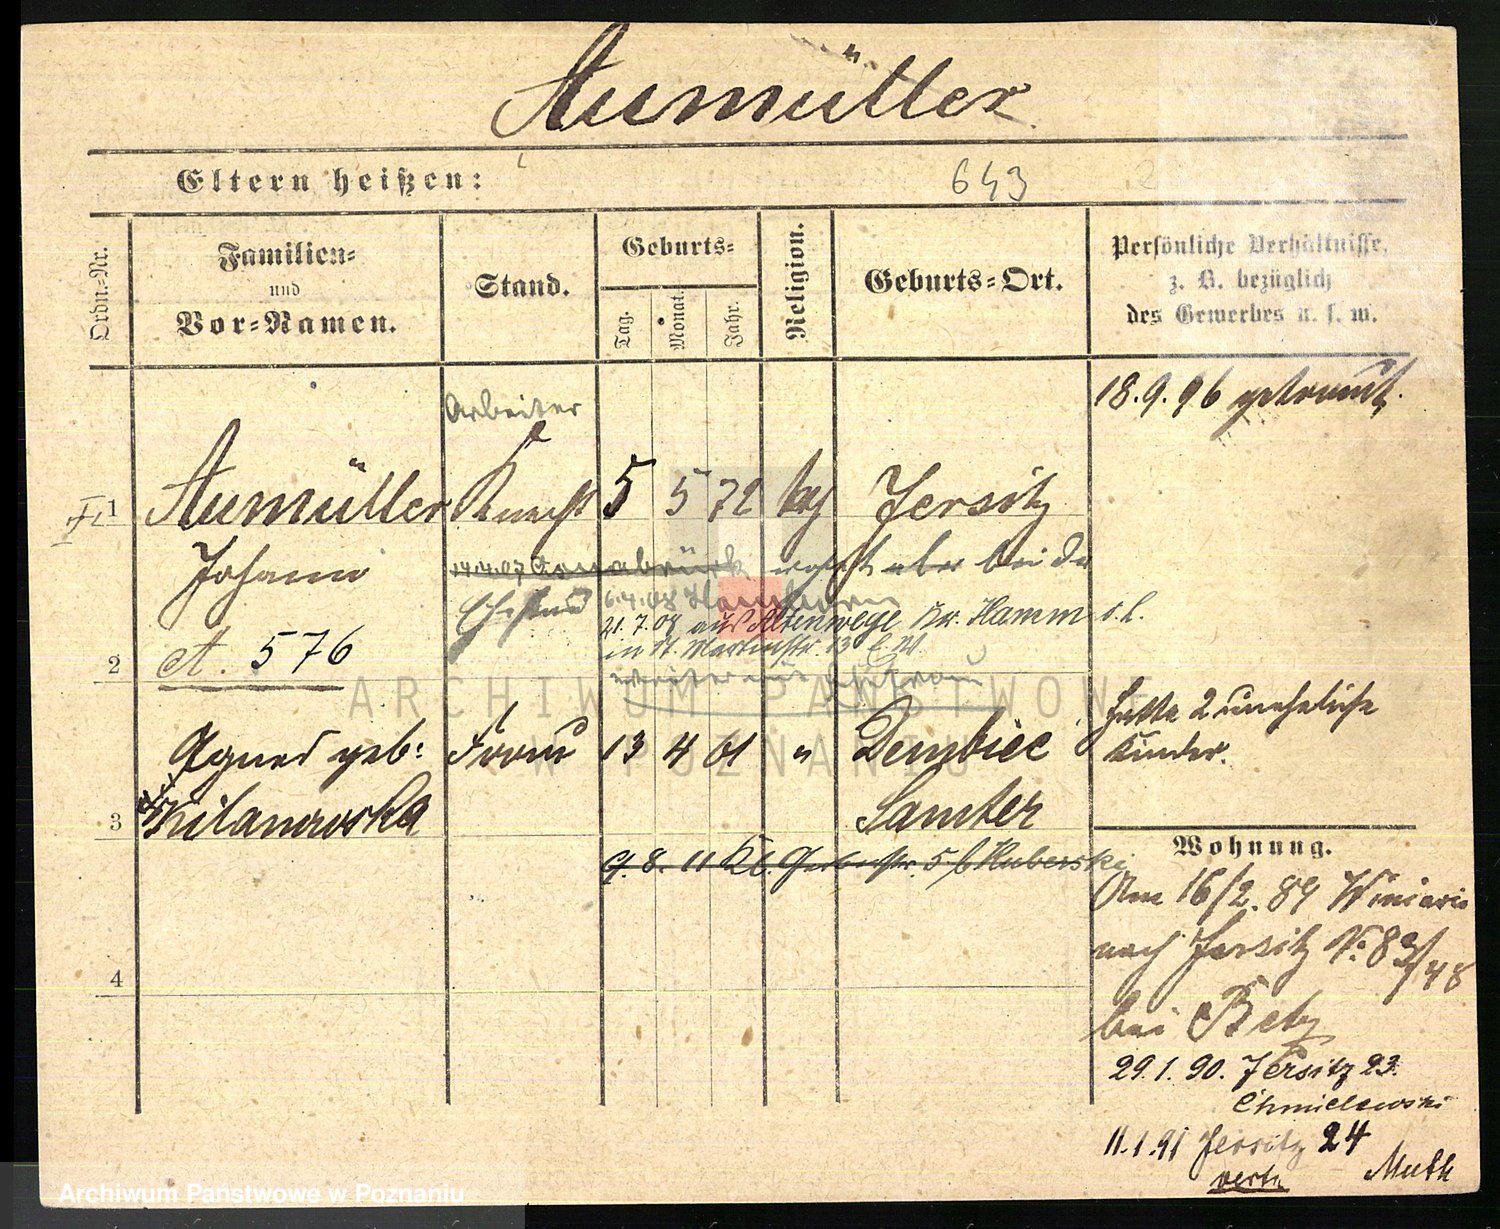 Aumüller
Eltern heißen:
643
Ordn.-Nr.
Familien-
und
Vor-Namen.
Stand.
Geburts-
Tag.
Monat.
Jahr.
Religion.
Geburts-Ort.
Persönliche Verhältnisse,
z. B. bezüglich
des Gewerbes u. s. w.
18.9.96 getraut.
Arbeiter
1 Aumüller Knecht 5 5 72 kg Jersitz
Johann
14.4.07 Osnabrück
Ehefrau 6.4.08
21.7.08 aus Altenwege Kr. Hamm
in St. Martinstr. 13
A. 576
2
Agnes geb: Frau 13 4 61 " Dembiec
hatte 2 uneheliche
Kinder.
3
Samter
9. 8. 11 Kl. Gerberstr. 5 b Huberski
Wohnung.
Am 16/2. 89 Winiary
nach Jersitz
4
bei Betz
29.1.90. Jersitz 23.
Chmielewski
11.1.91 Jersitz 24
Muth
verte
ARCHIWUM PAŃSTWOWE
W POZNANIU
Archiwum Państwowe w Poznaniu